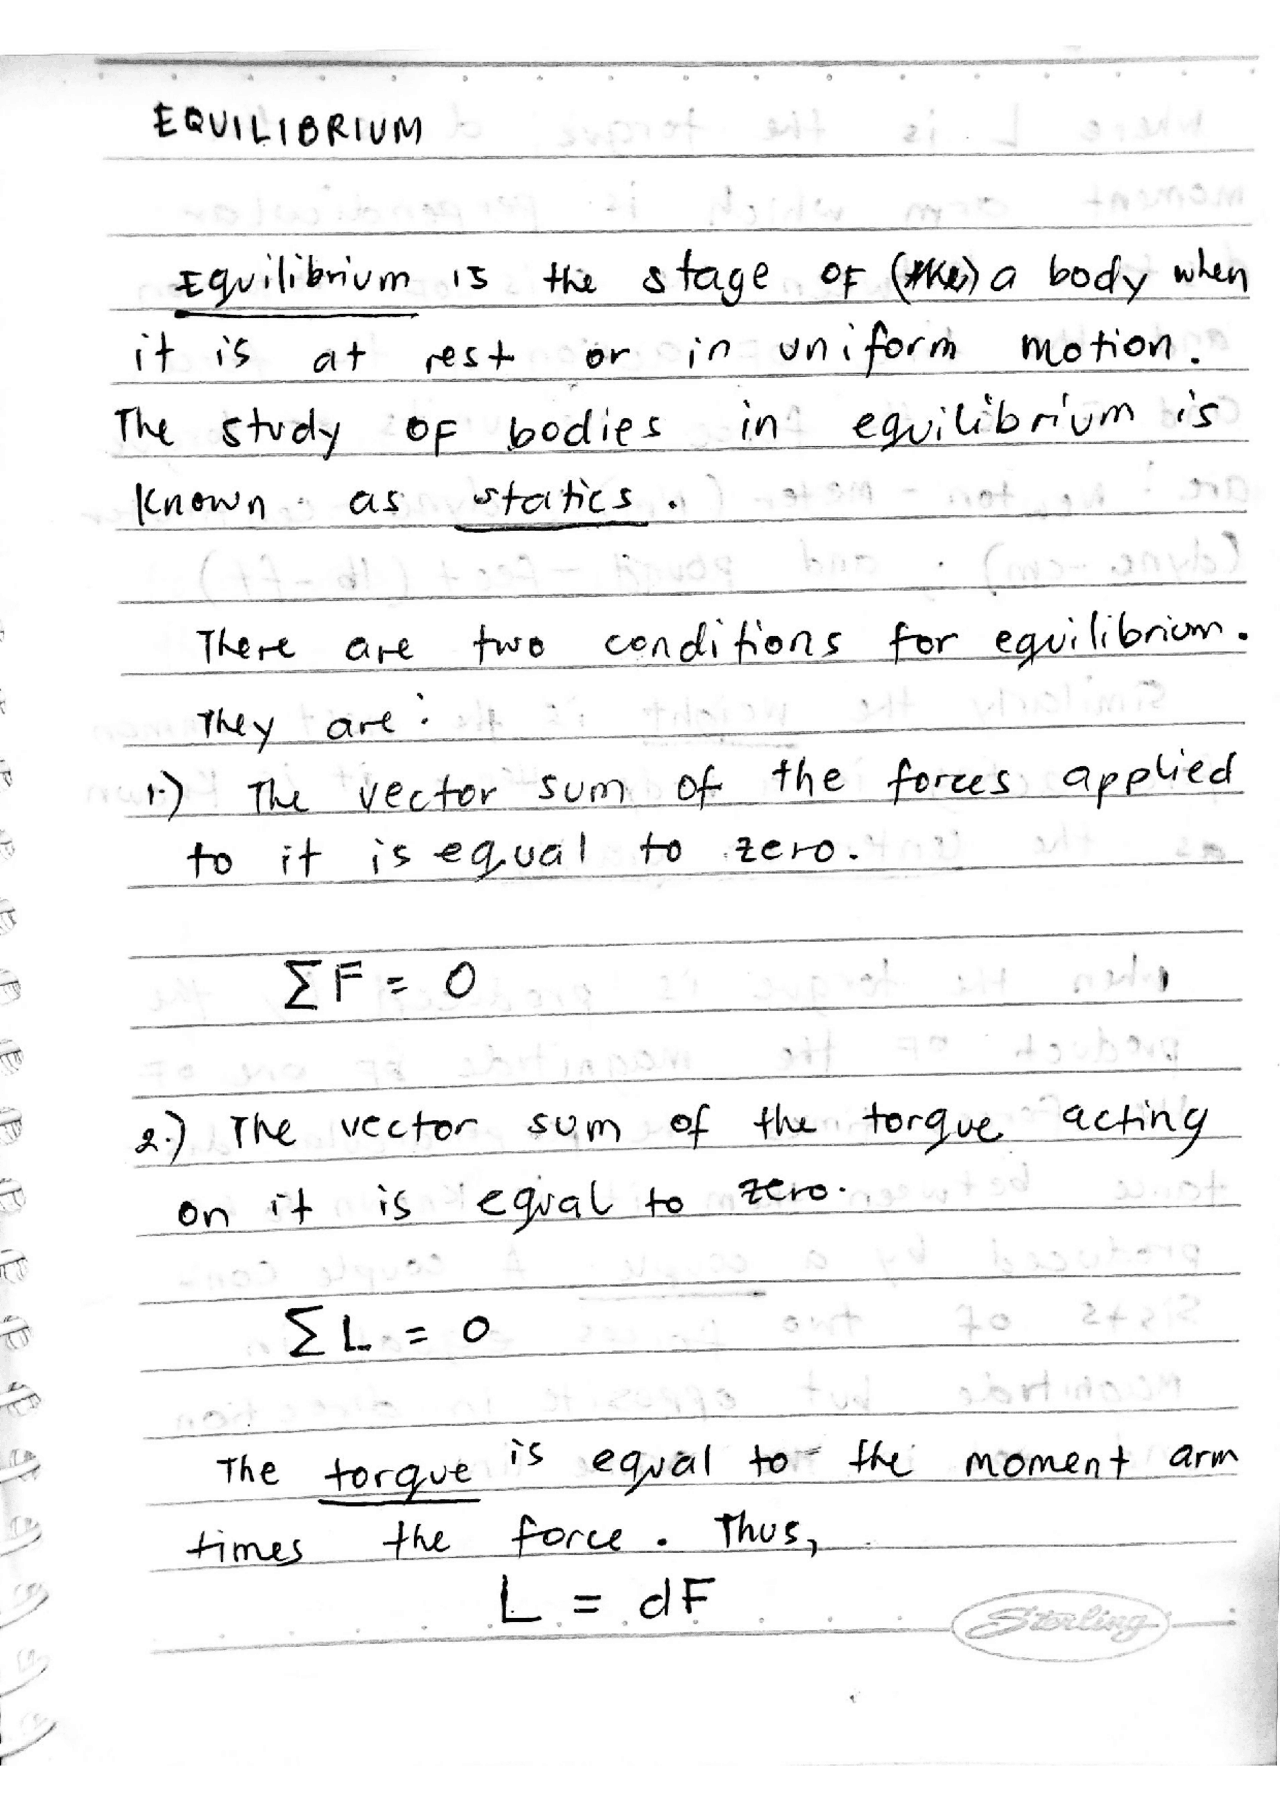 EQUILIBRIUM
Equilibrium is the stage of a body when
it is at rest or in uniform motion.
The study of bodies in equilibrium is
known as statics.
There are two conditions for equilibrium.
They are:
1.) The vector sum of the forces applied
to it is equal to zero.
ΣF = 0
2.) The vector sum of the torque acting
on it is equal to zero.
ΣL = 0
The torque is equal to the moment arm
times the force. Thus,
L = dF
Sterling